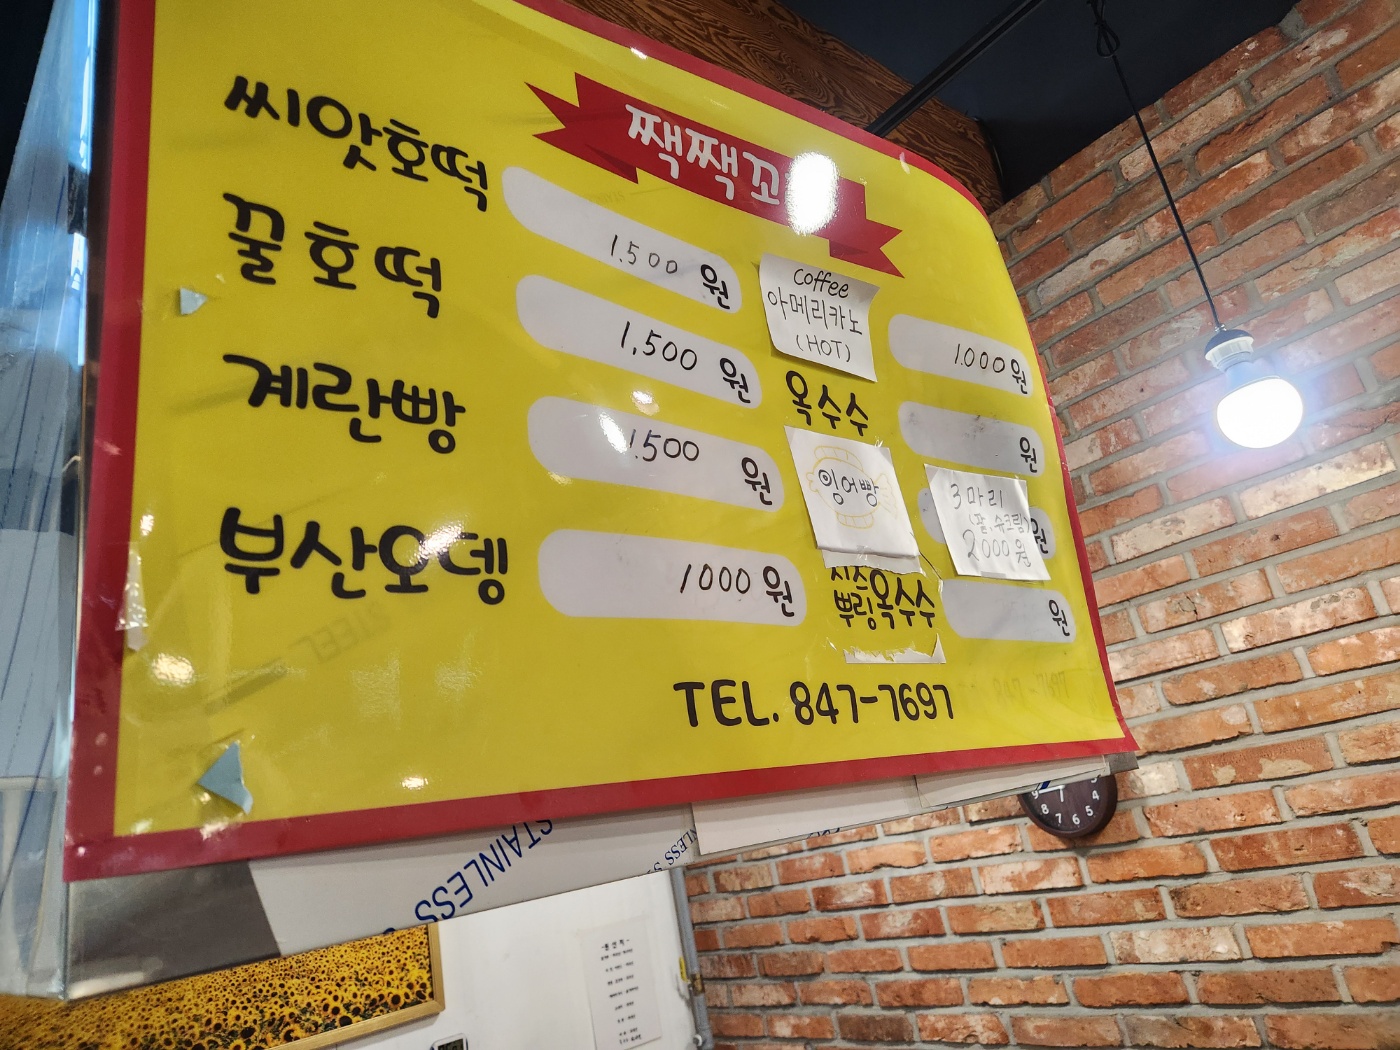 짹짹꼬
씨앗호떡 1.500 원
꿀호떡 1,500 원
계란빵 1.500 원
부산오뎅 1000 원
Coffee
아메리카노
(HOT)
1.000 원
옥수수 원
잉어빵
3마리
(팥,슈크림)
2000원
원
치즈
뿌링옥수수 원
TEL. 847-7697
STAINLESS
8 7 6 5 4